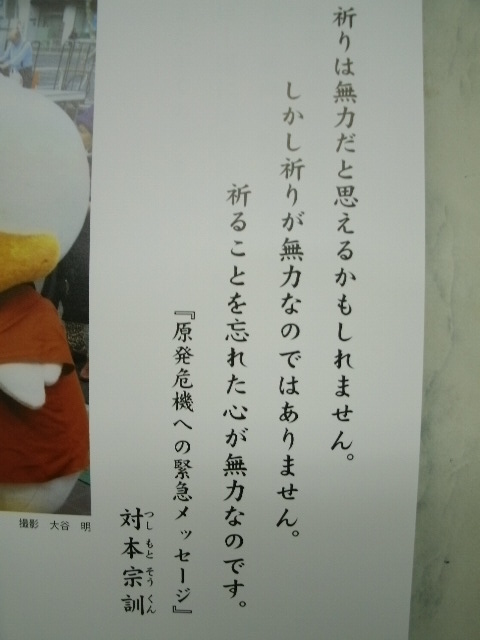 祈りは無力だと思えるかもしれません。
しかし祈りが無力なのではありません。
祈ることを忘れた心が無力なのです。
『原発危機への緊急メッセージ』
対本宗訓
つしもとそうくん
撮影 大谷 明